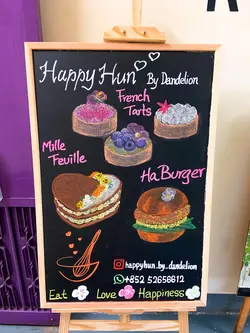 Happy Hun By Dandelion
French
Tarts
Mille
Feuille
Ha Burger
happyhun.by.dandelion
+852 52656612
Eat Love Happiness